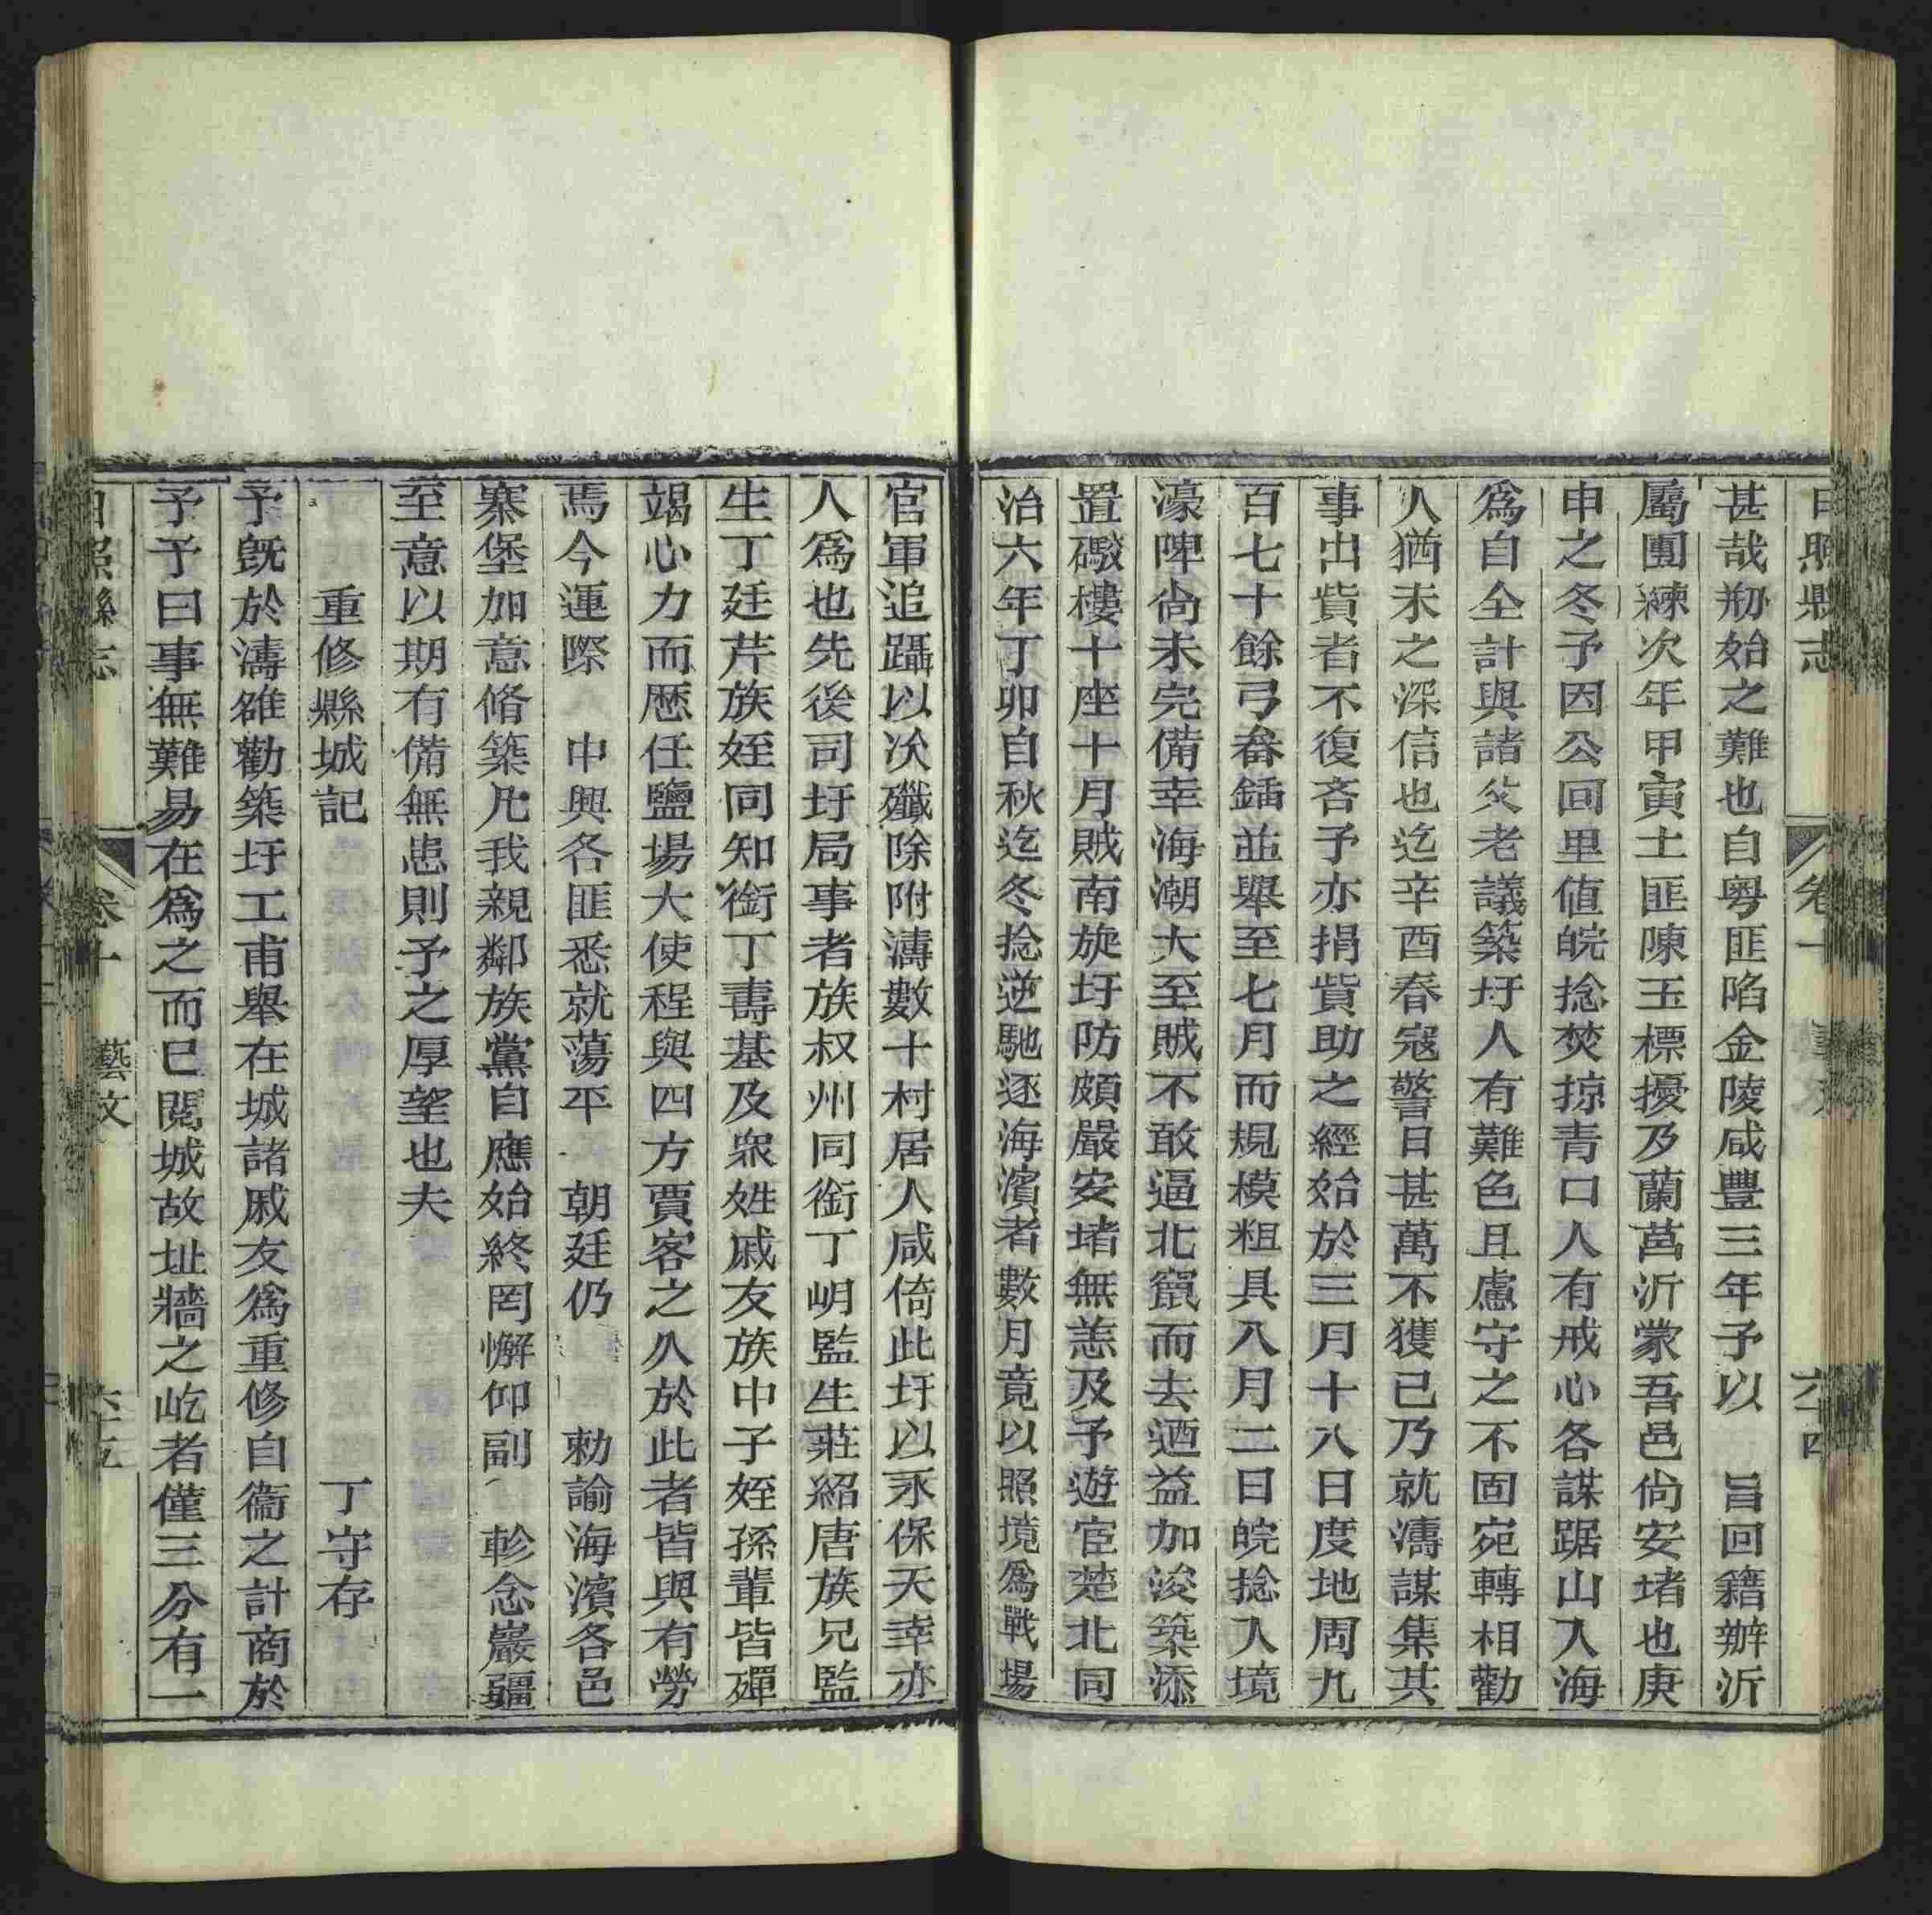 日照縣志 卷十 藝文 六十四
甚哉剏始之難也自粵匪陷金陵咸豐三年予以 旨回籍辦沂
屬團練次年甲寅土匪陳玉標擾及蘭莒沂蒙吾邑尙安堵也庚
申之冬予因公回里值皖捻焚掠青口人有戒心各謀踞山入海
爲自全計與諸父老議築圩人有難色且慮守之不固宛轉相勸
人猶未之深信也迄辛酉春寇警日甚萬不獲已乃就濤謀集其
事出貲者不復吝予亦捐貲助之經始於三月十八日度地周九
百七十餘弓畚鍤並舉至七月而規模粗具八月二日皖捻入境
濠陴尙未完備幸海潮大至賊不敢逼北竄而去迺益加浚築添
置礮樓十座十月賊南旋圩防頗嚴安堵無恙及予遊宦楚北同
治六年丁卯自秋迄冬捻逆馳逐海濱者數月竟以照境爲戰場
官軍追躡以次殲除附濤數十村居人咸倚此圩以永保天幸亦
人爲也先後司圩局事者族叔州同銜丁岄監生莊紹唐族兄監
生丁廷芹族姪同知銜丁壽基及衆姓戚友族中子姪孫輩皆殫
竭心力而歷任鹽場大使程與四方賈客之久於此者皆與有勞
焉今運際 中興各匪悉就蕩平 朝廷仍 勅諭海濱各邑
寨堡加意脩築凡我親鄰族黨自應始終罔懈仰副 軫念巖疆
至意以期有備無患則予之厚望也夫
重修縣城記 丁守存
予旣於濤雒勸築圩工甫舉在城諸戚友爲重修自衞之計商於
予予曰事無難易在爲之而已閱城故址牆之屹者僅三分有一
日照縣志 卷十 藝文 六十五